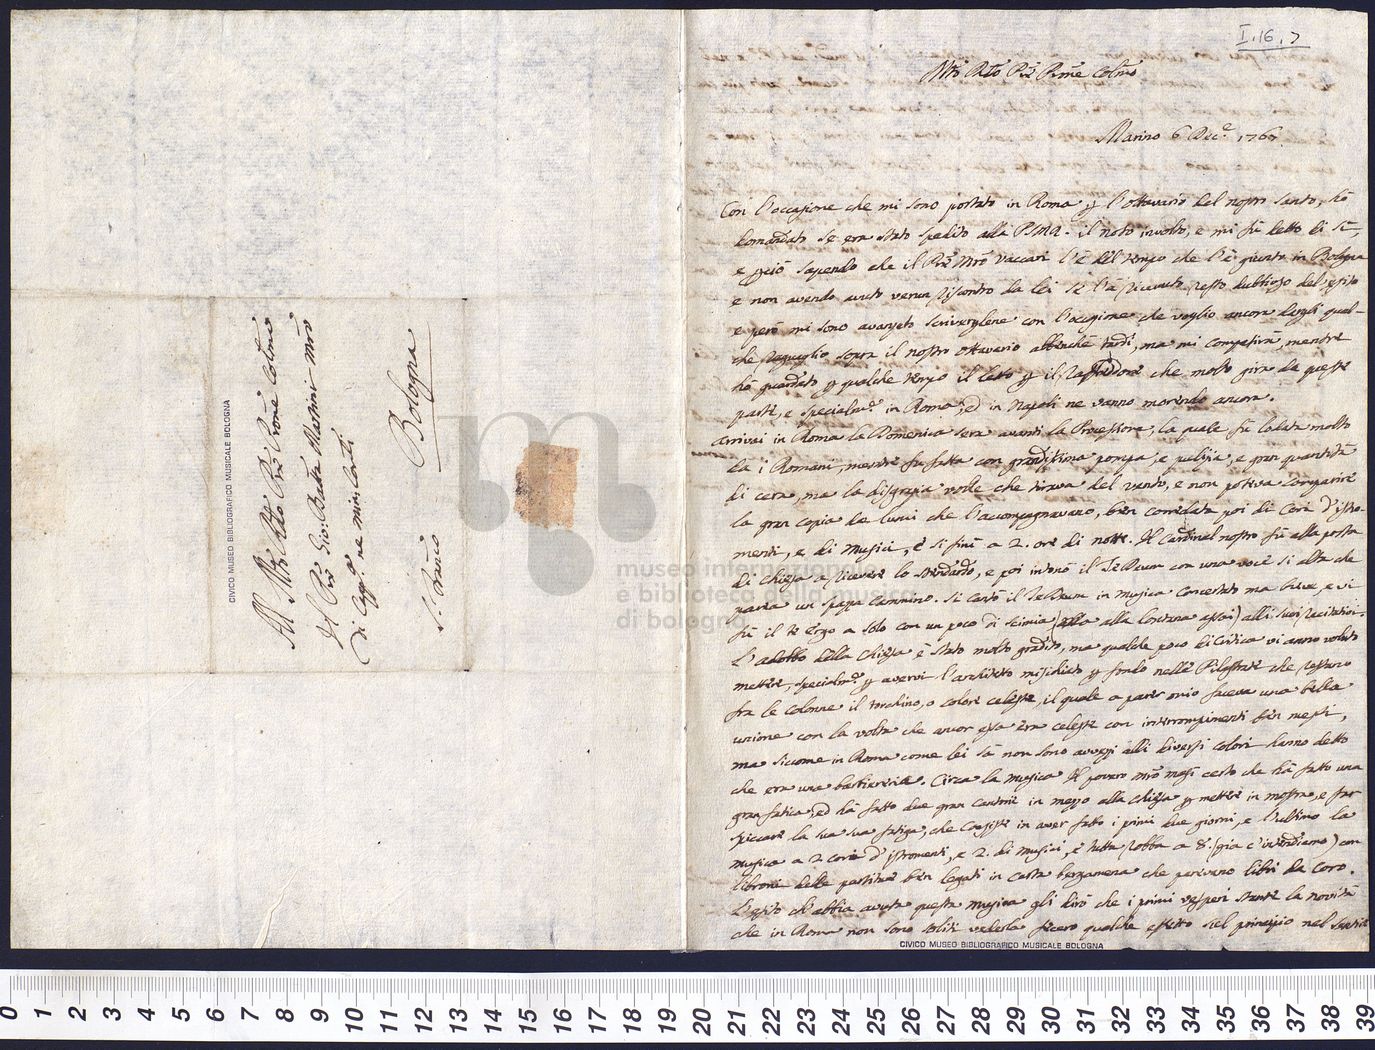 I.16.7
M.to R.do P.re P.rone Col.mo
Marino 6 Dec.e 1767
Con l'occasione che mi sono portato in Roma p l'ottavario del nostro Santo, hò
domandato se era stato spedito alla PSMR. il noto involto, e mi fù detto di sì,
e perciò sapendo che il P.re M.ro Vaccari l'è del tempo che l'è giunto in Bologna
e non avendo avuto verun riscontro da lei se l'à ricevuto, resto dubbioso del esito
e però mi sono avanzato scriverglene con l'occasione che voglio ancora dargli qual-
che raguaglio sopra il nostro ottavario abbenchè tardi, ma mi compatirà, mentre
hò guardato p qualche tempo il letto p il raffredore che molto gira da queste
parti, e specialm.e in Roma, ed in Napoli ne vanno morendo ancora.
Arrivai in Roma la Domenica sera avanti la Processione, la quale fù lodata molto
da i Romani, mentre fu fatta con grandissima pompa, e pulizia, e gran quantità
di cera, ma la disgrazia volle che tirava del vento, e non poteva comparire
la gran copia de lumi che l'accompagnavano, ben corredata poi di Cori d'istro-
menti, e di Musici, e si finì a 2. ore di notte. Il Cardinal nostro fù alla porta
di Chiesa a ricevere lo stendardo, e poi intonò il Te Deum con una voce sì alta che
pareva un spazza cammino. Si cantò il Te Deum in musica concertato ma breve, e vi
fù il Te Ergo a solo con un poco di scimia (alla lontana assai) alli suoi recitativi.
L'adobbo della Chiesa è stato molto gradito, ma qualche poco di critica vi anno voluto
mettere, specialm.e p avervi l'architetto mischiato p fondo nelle Pilastrate che restano
fra le colonne il torchino, o colore celeste, il quale a parer mio faceva una bella
unione con la volta che ancor essa era celeste con interrompimenti ben messi,
ma siccome in Roma come lei sà non sono avvezzi alli diversi colori hanno detto
che era una barbieria. Circa la musica Il povero M.ro Masi certo che hà fatto una
gran fatica, ed hà fatto due gran cantorie in mezzo alla Chiesa p mettere in mostra, e far
spiccare la sua fatiga, che consiste in aver fatto i primi due giorni, e l'ultimo la
musica a 2 cori d'istromenti, e 2. di Musici, e tutta robba a 8. (già c'intendiamo) con
libroni delle partiture ben legati in carta bergamena che parevano libri da Coro.
L'esito ch'abbia avuto questa musica gli dirò che i primi vesperi stante la novità
che in Roma non sono soliti vederla fecero qualche effetto sul principio nel sentire
CIVICO MUSEO BIBLIOGRAFICO MUSICALE BOLOGNA
Al M.to R.do P.re P.rone Col.mo
Il P.re Gio: Batta Martini M.ro
di Capp.a ne min. Conti
S. Franc.o Bologna
CIVICO MUSEO BIBLIOGRAFICO MUSICALE BOLOGNA
museo internazionale
e biblioteca della musica
di bologna
0 1 2 3 4 5 6 7 8 9 10 11 12 13 14 15 16 17 18 19 20 21 22 23 24 25 26 27 28 29 30 31 32 33 34 35 36 37 38 39